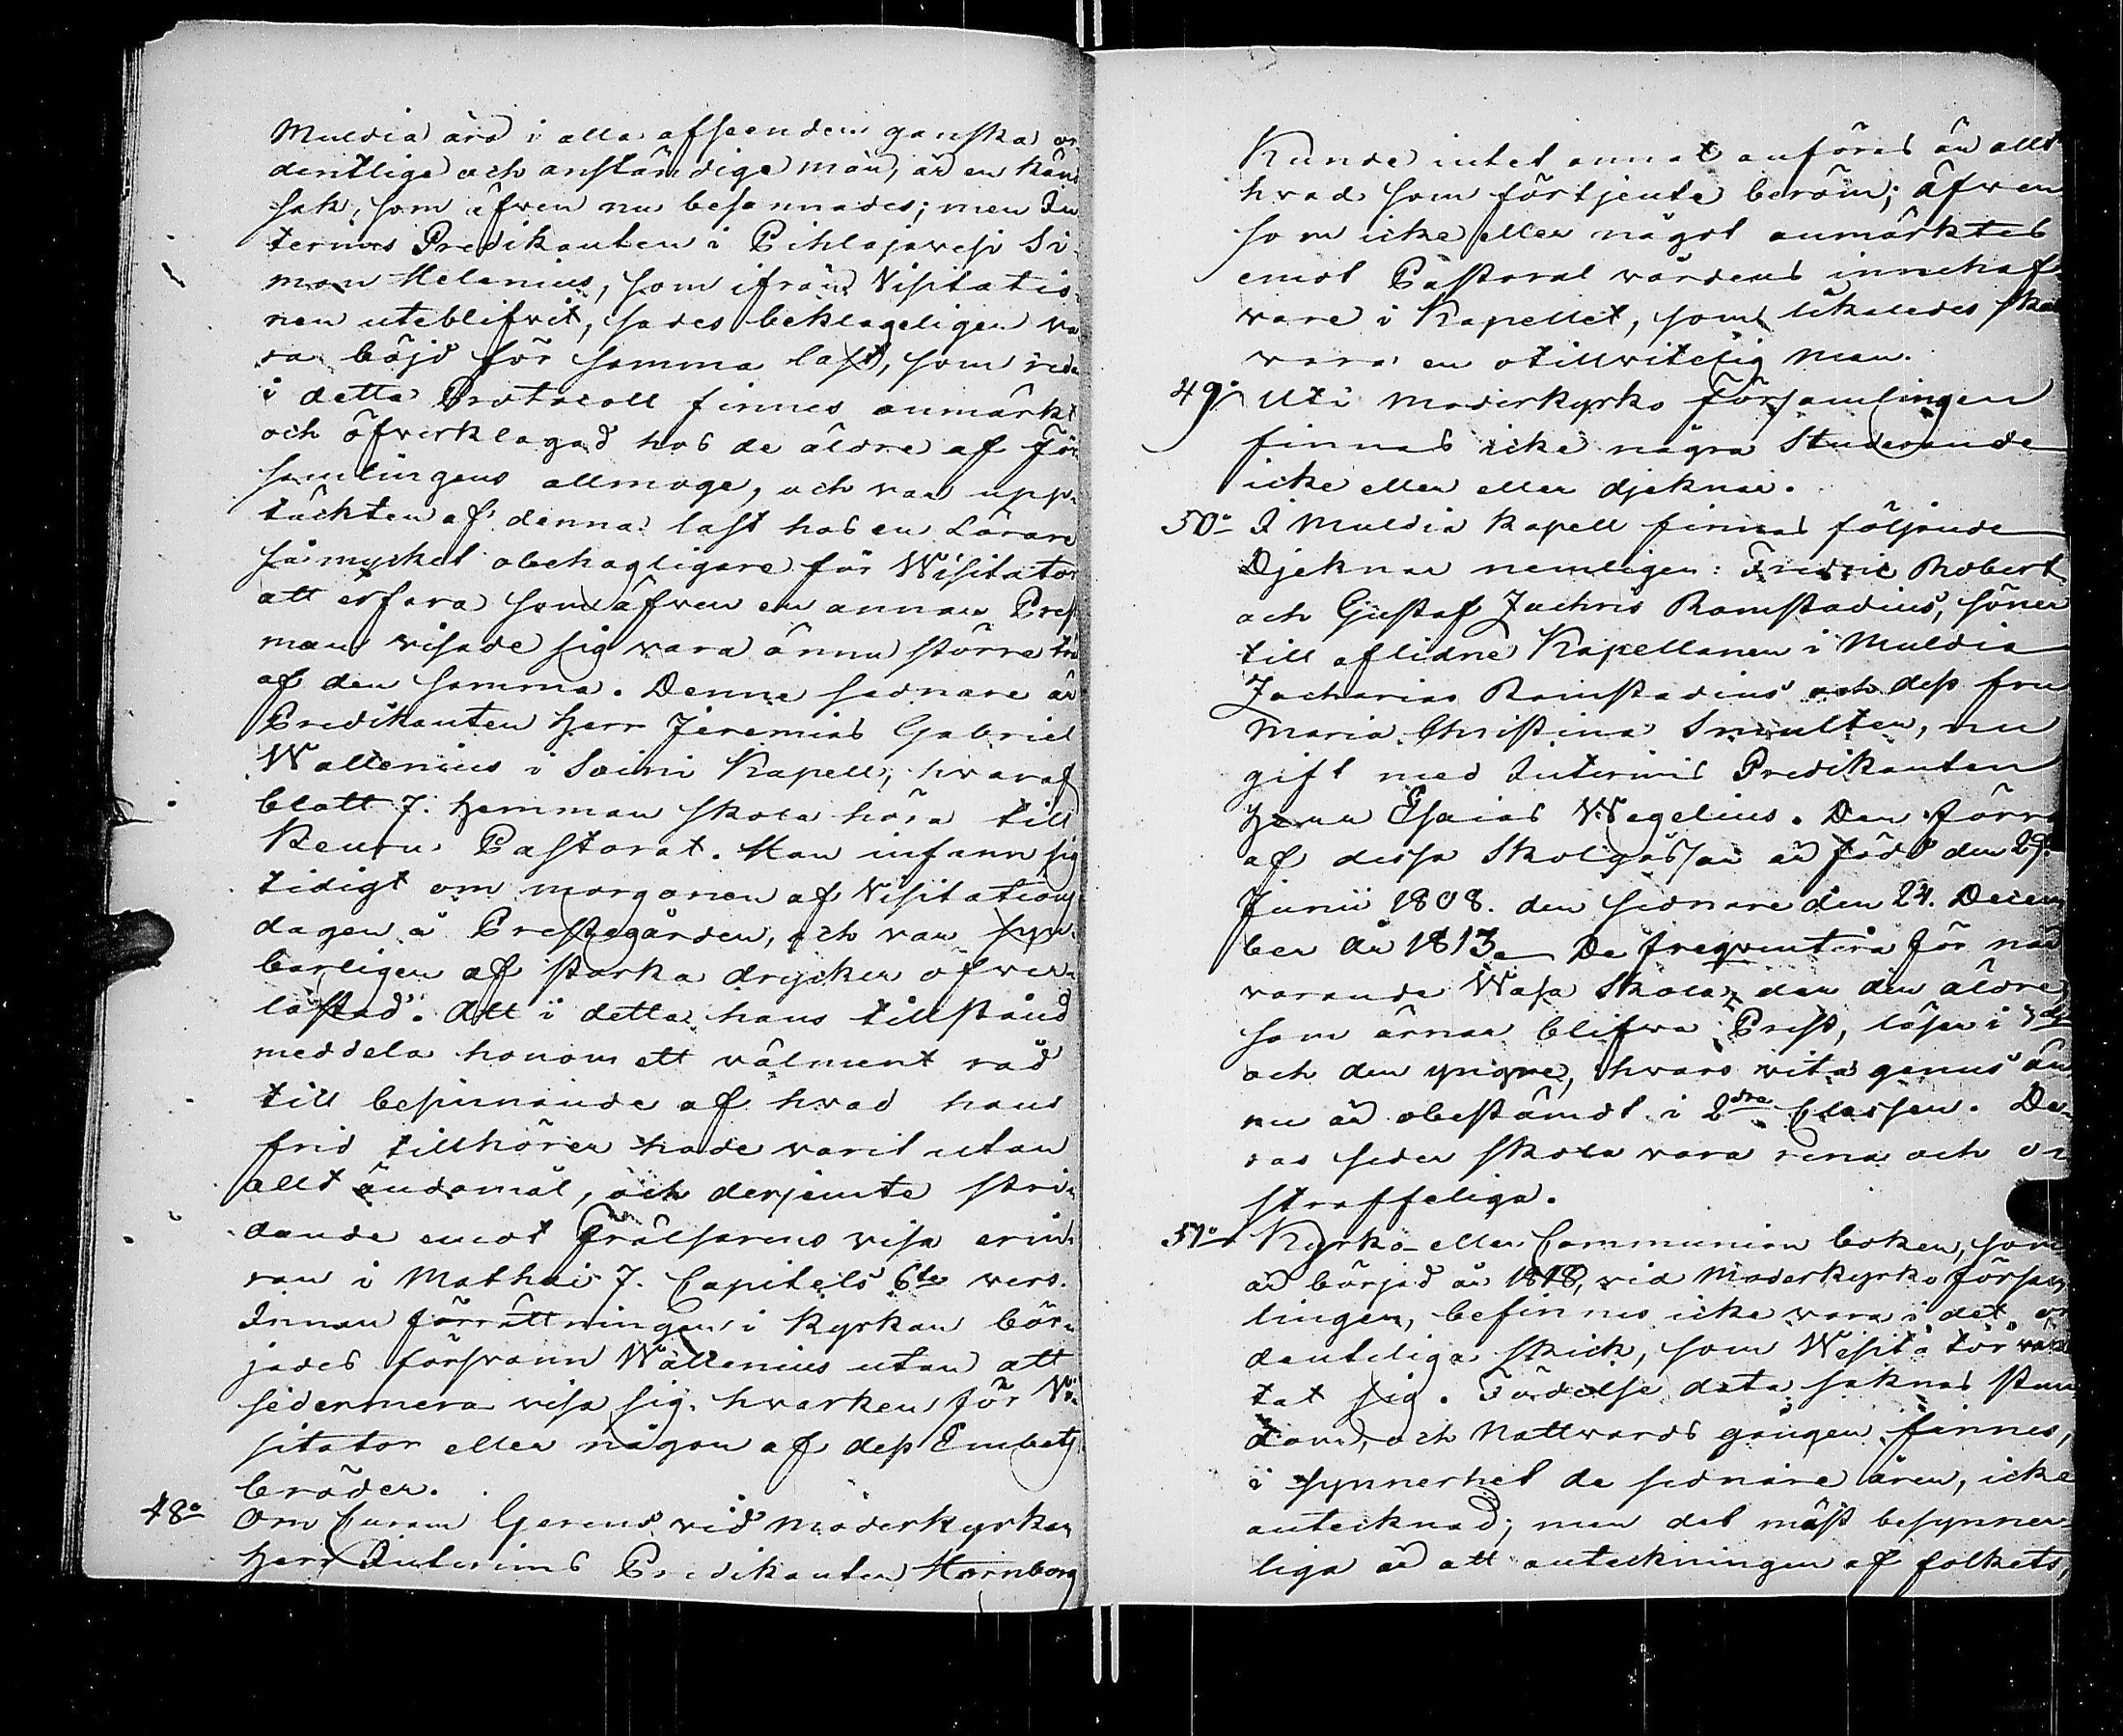 Muldia äro i alla afseenden ganska or
dentlige och anständige män, är en känd
sak, som äfwen nu besannades; men In
terims Predikanten i Pihlajawesi Si-
mon Helenius, som ifrån Visitatio-
nen uteblifvit, sades beklageligen va
ra böjd för samma last, som reda
i detta Protocoll finnes anmärkt
och öfverklagad hos de äldre af För
samlingens allmoge, och var upp-
täckten af denna last hos en Lärare
så mycket obehagligare för Wisitator
att erfara som äfven en annan Prest
man visade sig vara ännu större träl
af den samma. Denne sednare är
Predikanten Herr Jeremias Gabriel
Wallenius i Soini Kapell, hvaraf
blott 7. hemman skola höra till
Keuru Pastorat. Han infann sig
tidigt om morgonen af Visitations
dagen å Prestegården, och var syn-
barligen af starka drycker öfver-
lastad. Att i detta hans tillstånd
meddela honom ett välment råd
till besinnande af hvad hans
frid tillhörer hade varit utan
allt ändamål, och derjemte stri-
dande emot Frälsarens visa erin-
ran i Mathei 7. Capitels 6te vers.
Innan förrättningen i Kyrkan bör-
jades försvann Wallenius utan att
sedermera visa sig hvarken för Vi
sitator eller någon af dess Embets
bröder.
48o Om Curam Gerens vid moderkyrkan
Herr Interims Predikanten Hornborg
Kunde intet annat anföras än allt
hvad som förtjente beröm; äfwen
som icke eller något anmärktes
emot Pastoral vårdens innehaf
vare i Kapellet, som likaledes skall
vara en otillvitelig man.
49o Uti moderkyrko Församlingen
finnas icke några Studerande
icke eller eller djeknar.
50o I Muldia Kapell finnas följande
Djeknar nemligen: Fredric Robert
och Gustaf Zachris Ramstadius, söner
till aflidne Kapellanen i Muldia
Zacharias Ramstadius och dess fru
Maria Christina Smulter, nu
gift med Interims Predikanten
Herr Esaias Wegelius. Den förra
af dessa Skolgossar är född den 29.
Junii 1808. den sednare den 24. Decem
ber år 1813. De freqventera för när
varande Wasa Skola, der den äldre
som ärnar blifwa Prest, läser i 3dje
och den yngre, hvars vitæ genus än
nu är obestämdt i 2dra Classen. De
ras seder skola vara rena och o-
straffeliga.
51o Kyrko- eller Communion boken, som
är börjad år 1818, vid Moderkyrko försam
lingen, befinnes icke vara i det or
denteliga skick, som Wisitator vän
tat sig. Födelse data saknas stun
dom, och Nattvards gången finnes,
i synnerhet de sednare åren, icke
antecknad; men det mäst besynner-
liga är att anteckningen af folkets,